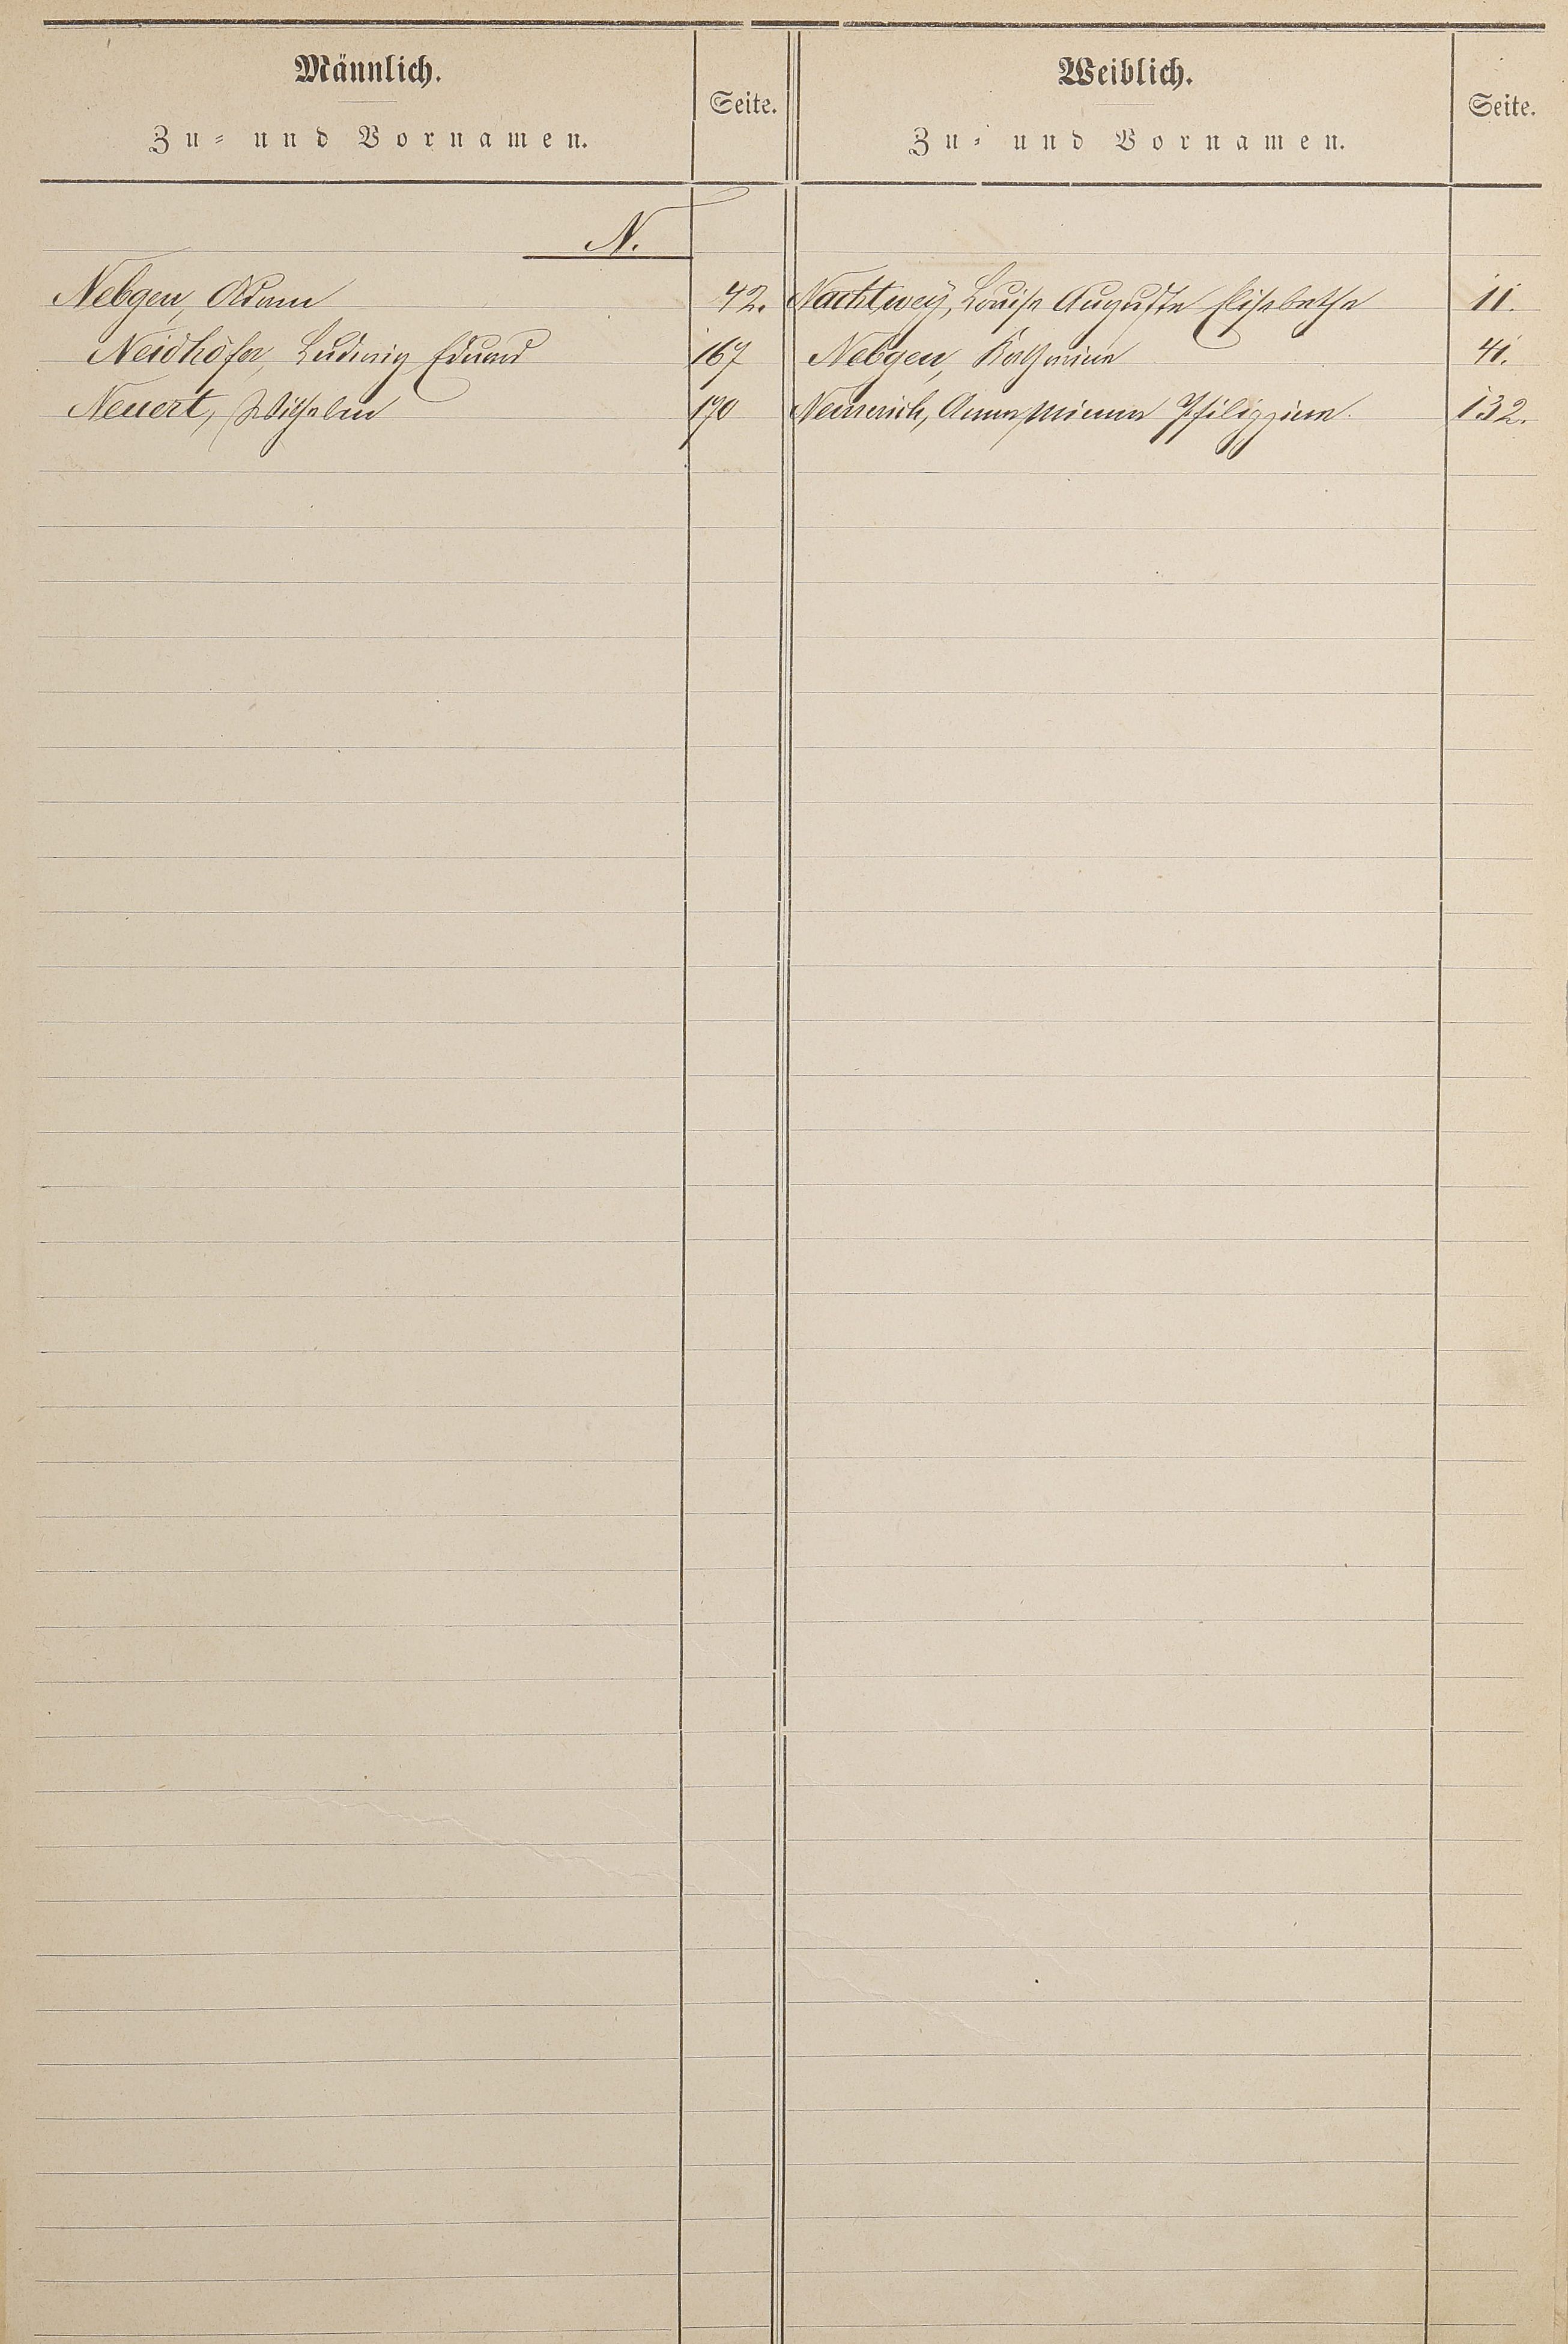 Männlich.
Zu- und Vornamen.
Seite.
Weiblich.
Zu- und Vornamen.
Seite.
N.
Nebgen, Adam 42. Nachtwey, Louise Auguste Elisabethe 11.
Neidhöfer, Ludwig Eduard 167 Nebgen, Katharina 41.
Neuert, Wilhelm 170 Anna Philippina. 132.